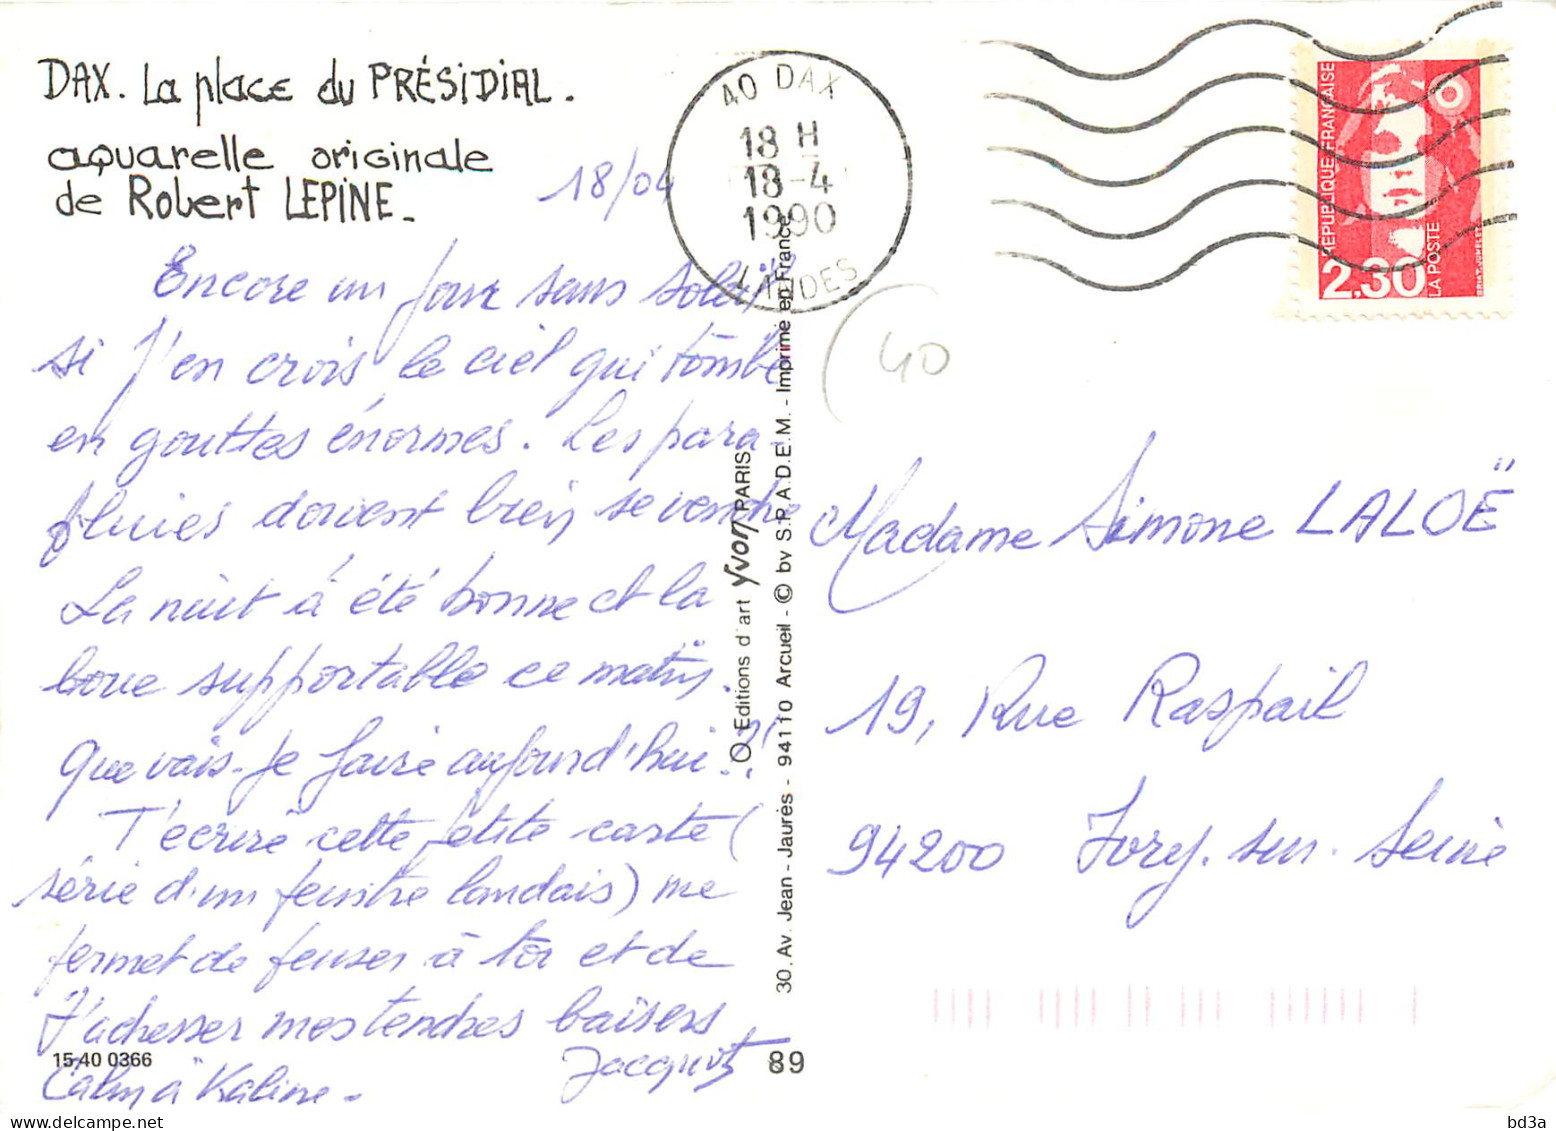 DAX. La place du PRÉSIDIAL.
aquarelle originale
de Robert LEPINE.
18/04
40 DAX
18 H
18-4
1990
LANDES
REPUBLIQUE FRANÇAISE
2,30
LA POSTE
40
Encore un jour sans soleil
si j'en crois le ciel qui tombe
en gouttes énormes. Les para-
pluies doivent bien se vendre
La nuit a été bonne et la
boue supportable ce matin.
Que vais-je faire aujourd'hui?!
T'écrire cette petite carte (
série d'un peintre landais) me
permet de penser à toi et de
t'adresser mes tendres baisers
Calin à Kaline.
Jacquot
Editions d'art Yvon PARIS
30. Av. Jean - Jaurés - 94110 Arcueil - © by S.P.A.D.E.M. - Imprimé en France
15-40 0366
89
Madame Simone LALOË
19, Rue Raspail
94200 Ivry. sur. Seine
delcampe.net
bd3a